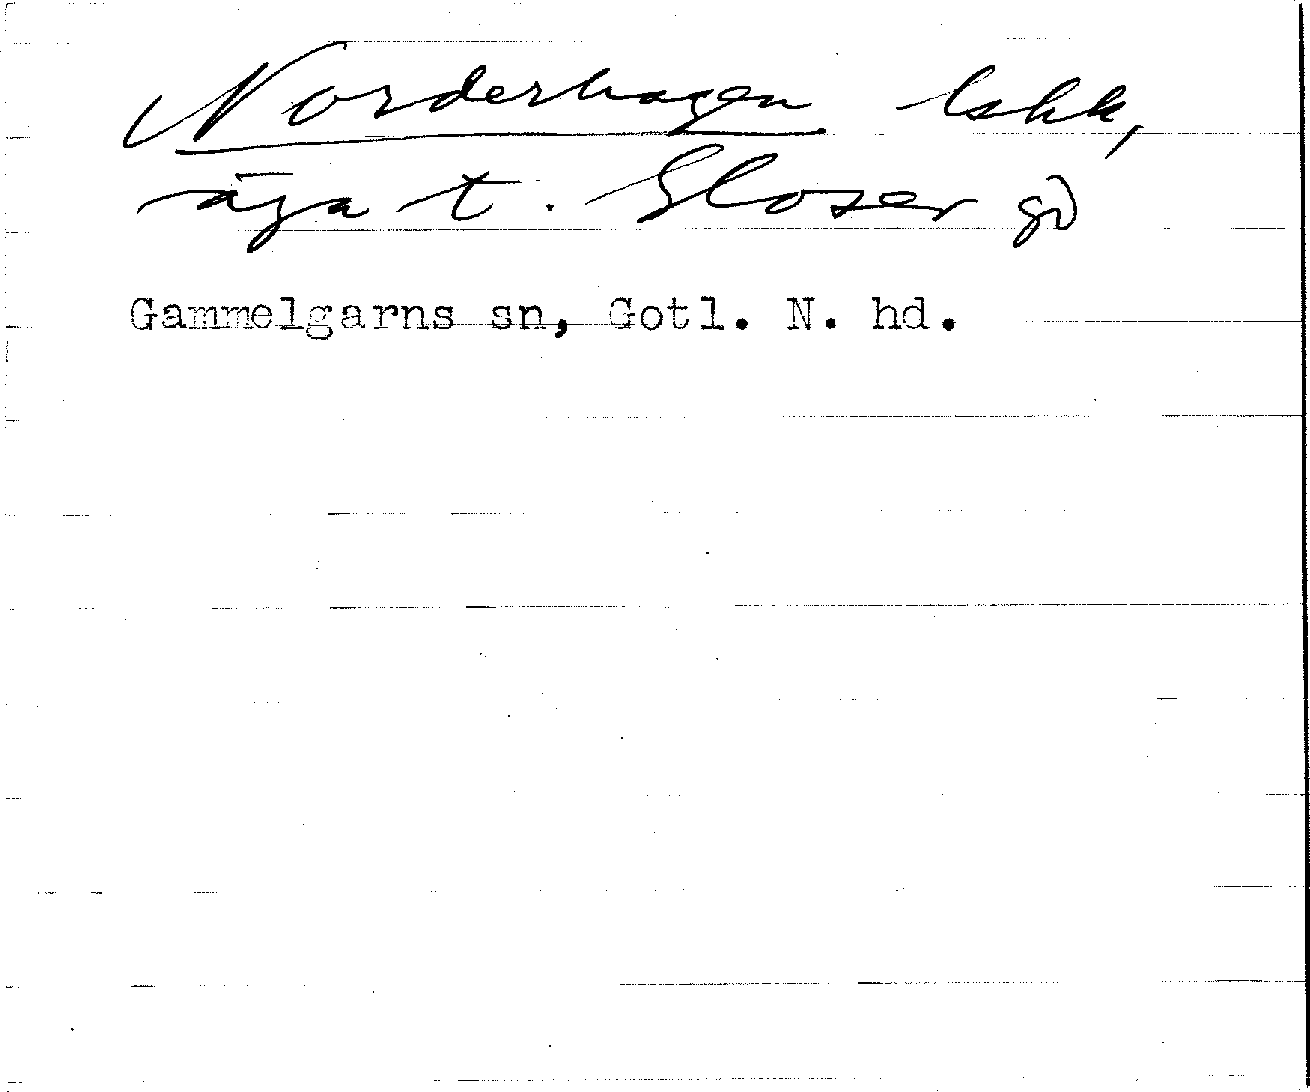 Norderhagen lskk,
äga t. Gloser gd
Gammelgarns sn, Gotl. N. hd.